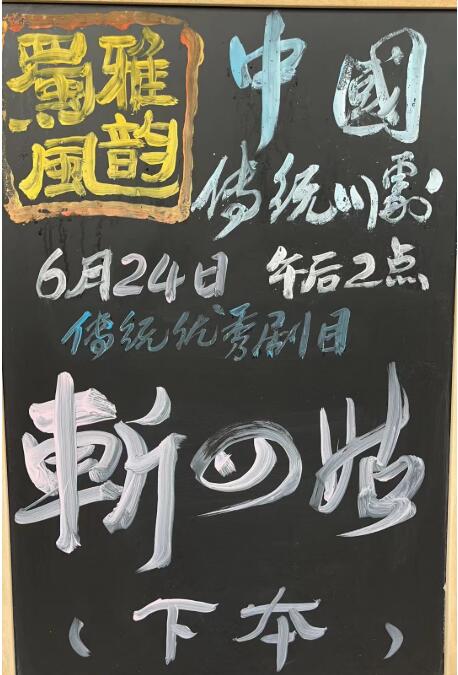 蜀風
雅韵
中國
傳统川劇
6月24日 午后2点
傳统优秀剧目
斬四姑
（下本）